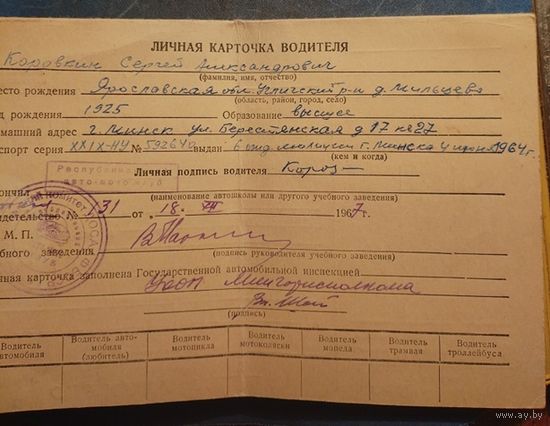 ЛИЧНАЯ КАРТОЧКА ВОДИТЕЛЯ
Коровкин Сергей Александрович
(фамилия, имя, отчество)
есто рождения Ярославская обл. Угличский р-н д. Мильцево
(область, район, город, село)
д рождения 1925 Образование высшее
машний адрес г. Минск ул. Берестянская д 17 кв 27
спорт серия XXIX-НУ № 592640 выдан 6 отд. милиции г. Минска 4 июня 1964 г.
(кем и когда)
Личная подпись водителя
Республика
авто-мото клуб
ончил
(наименование автошколы или другого учебного заведения)
идетельство № 31 от 18. VII 1967 г.
М. П.
бного заведения
(подпись руководителя учебного заведения)
ная карточка заполнена Государственной автомобильной инспекцией
Мингорисполкома
(подпись)
Водитель автомобиля Водитель авто-мобиля (любитель) Водитель мотоцикла Водитель мотоколяски Водитель мопеда Водитель трамвая Водитель троллейбуса
www.ay.by